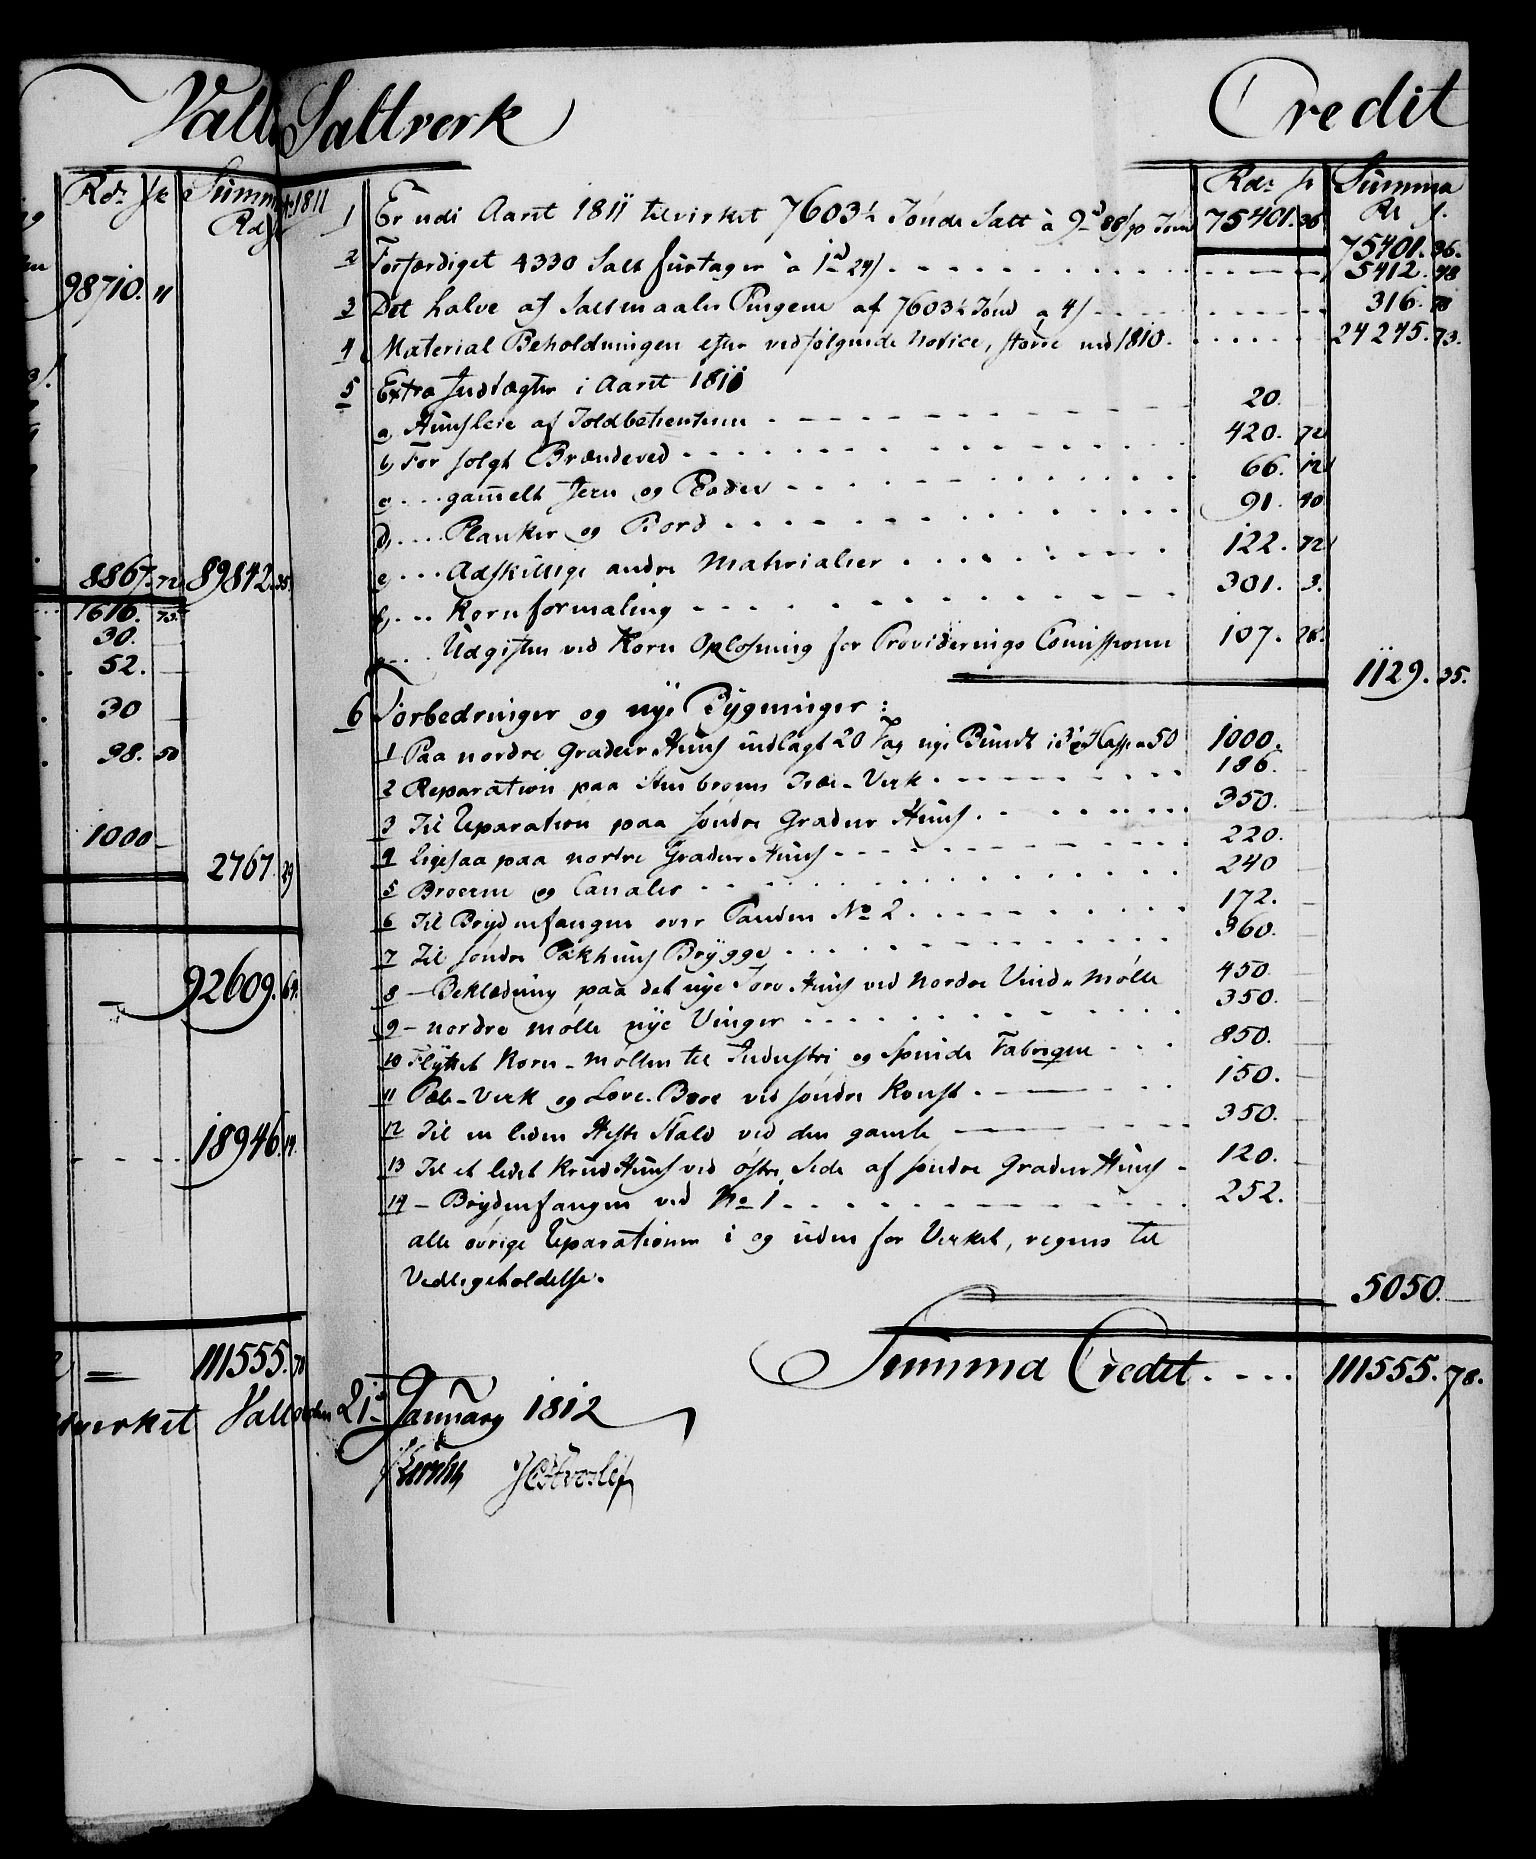 Saltverk
Credit
Rdr ſk Summa
Rd ſ.
1811
1 Er udi Aaret 1811 tilvirket 7603½ Tønde Salt à 9 d 88/ pr Tønd 75401. 36
75401. 36.
2 Forfærdiget 4330 Salt fustager à 1 d 24/ 5412. 48
3 Det halve af Saltmaaler Pengene af 7603½ Tønd a 4/ 316. 78
4 Material Beholdningen efter vedfølgende Notice, større end 1810. 24245. 73.
5 Extra Indtægter i Aaret 1811
a, Huusleie af Toldbetienterne 20.
b, For solgt Brændeved 420. 72
c, gammelt Jern og Poder 66. 12
d, Planker og Bord 91. 40
e, Adskillige andre Materialier 122. 72
f, Kornformaling 301. 3.
Udgifter ved Korn Oplosning for Provideringe Comissionen 107. 28.
1129. 35.
6 Forbedringer og nye Bygninger:
1 Paa nordre Gradeer Huus indlagt 20 Fag nye Bund 50 1000.
2 Reparation paa Træ-Verk 186.
3 Til Reparation paa søndre Gradeer Huus 350.
4 ligesaa paa nordre Gradeer Huus 220.
5 Broerne og Canaler 240
6 Til Brydenfangen over Panden No 2 172.
7 Til søndre Pakhuus Brygge 360.
8 - Beklædning paa det nye Torv Huus ved Nordre Vind Mølle 450
9 - nordre Mølle nye Vinger 350.
10 Flyttet Korn-Møllen til Industri og Spinde Fabriqen 850.
11 Pæle-Verk og Broe ved søndre Konst 150.
12 Til en liden Heste Stald ved den gamle 350.
13 Til et lidet Krud Huus ved østre Side af søndre Gradeer Huus 120.
14 - Brydenfangen ved No 1 252.
alle øvrige Reparationer i og uden for Verket, regnes til
Vedligeholdelse.
5050.
Summa Credit 111555. 78.
21 January 1812
98710.
8867. 72 89842. 35
1616. 73.
30.
52.
30
98. 50
1000
2767. 29
92609. 64.
18946. 14.
111555. 78